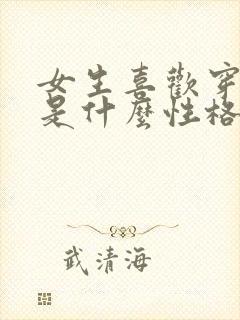 女生喜歡穿
是什麼性格
武清海